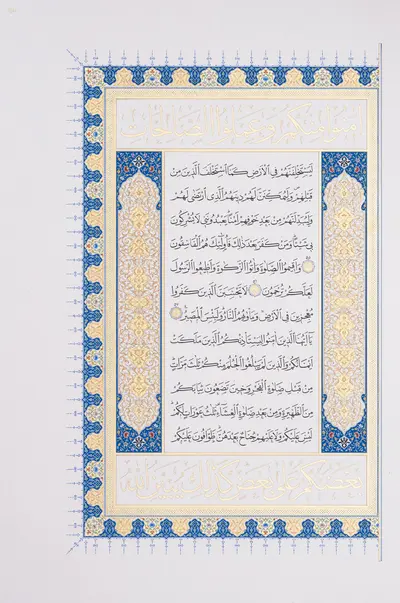 آمنوا منكم وعملوا الصالحات
لَيَسْتَخْلِفَنَّهُمْ فِي الْأَرْضِ كَمَا اسْتَخْلَفَ الَّذِينَ مِنْ
قَبْلِهِمْ وَلَيُمَكِّنَنَّ لَهُمْ دِينَهُمُ الَّذِي ارْتَضَىٰ لَهُمْ
وَلَيُبَدِّلَنَّهُمْ مِنْ بَعْدِ خَوْفِهِمْ أَمْنًا يَعْبُدُونَنِي لَا يُشْرِكُونَ
بِي شَيْئًا وَمَنْ كَفَرَ بَعْدَ ذَٰلِكَ فَأُولَٰئِكَ هُمُ الْفَاسِقُونَ
وَأَقِيمُوا الصَّلَاةَ وَآتُوا الزَّكَاةَ وَأَطِيعُوا الرَّسُولَ
لَعَلَّكُمْ تُرْحَمُونَ لَا تَحْسَبَنَّ الَّذِينَ كَفَرُوا
مُعْجِزِينَ فِي الْأَرْضِ وَمَأْوَاهُمُ النَّارُ وَلَبِئْسَ الْمَصِيرُ
يَا أَيُّهَا الَّذِينَ آمَنُوا لِيَسْتَأْذِنْكُمُ الَّذِينَ مَلَكَتْ
أَيْمَانُكُمْ وَالَّذِينَ لَمْ يَبْلُغُوا الْحُلُمَ مِنْكُمْ ثَلَاثَ مَرَّاتٍ
مِنْ قَبْلِ صَلَاةِ الْفَجْرِ وَحِينَ تَضَعُونَ ثِيَابَكُمْ
مِنَ الظَّهِيرَةِ وَمِنْ بَعْدِ صَلَاةِ الْعِشَاءِ ثَلَاثُ عَوْرَاتٍ لَكُمْ
لَيْسَ عَلَيْكُمْ وَلَا عَلَيْهِمْ جُنَاحٌ بَعْدَهُنَّ طَوَّافُونَ عَلَيْكُمْ
بعضكم على بعض كذلك يبين الله